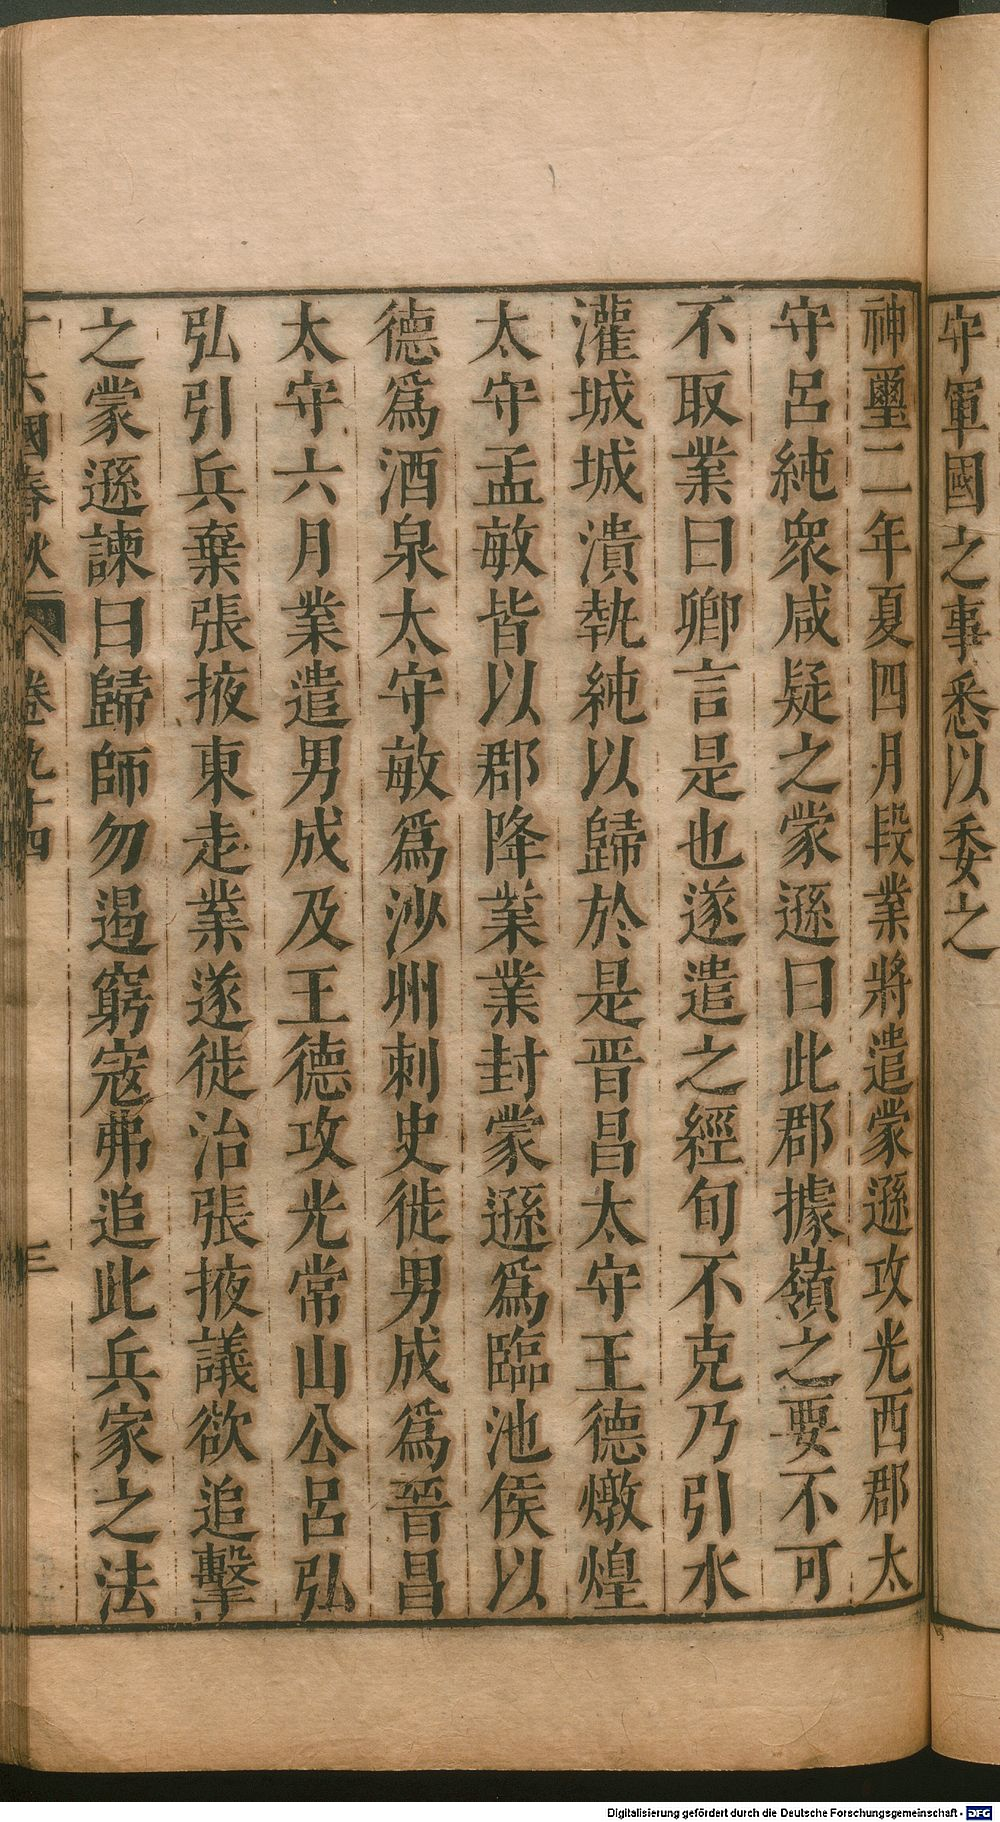 守軍國之事悉以委之
神璽二年夏四月段業將遣蒙遜攻光西郡太
守呂純衆咸疑之蒙遜曰此郡據嶺之要不可
不取業曰卿言是也遂遣之經旬不克乃引水
灌城城潰執純以歸於是晉昌太守王德燉煌
太守孟敏皆以郡降業業封蒙遜爲臨池侯以
德爲酒泉太守敏爲沙州刺史徙男成爲晉昌
太守六月業遣男成及王德攻光常山公呂弘
弘引兵棄張掖東走業遂徙治張掖議欲追擊
之蒙遜諫曰歸師勿遏窮寇弗追此兵家之法
十六國春秋 卷九十四 三
Digitalisierung gefördert durch die Deutsche Forschungsgemeinschaft - DFG